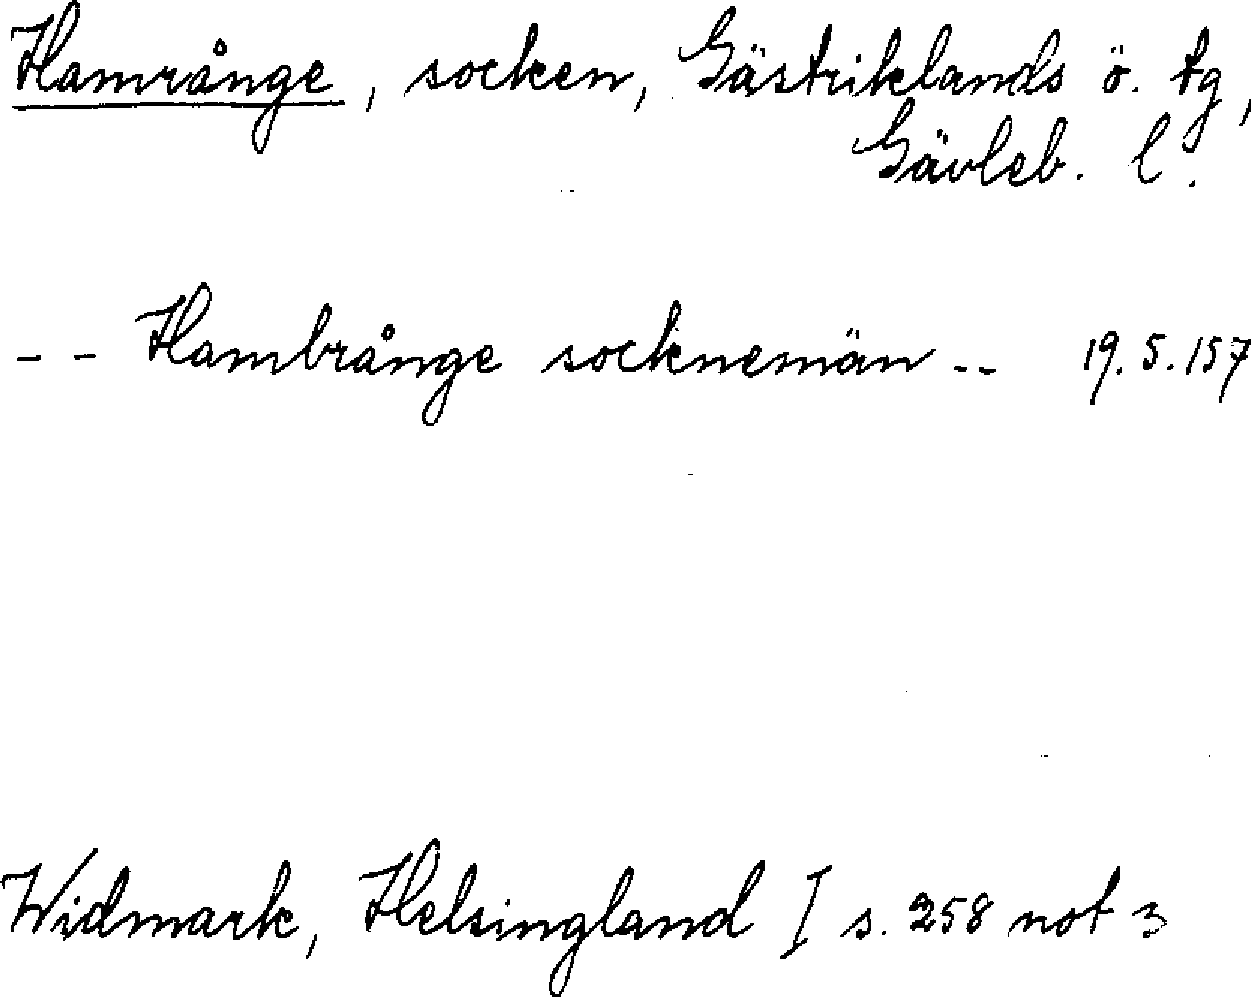 Hamrånge, socken, Gästriklands ö. tg,
Gävleb. l.
- - Hambrånge socknemän -- 19.5.157
Widmark, Helsingland I s. 258 not 3